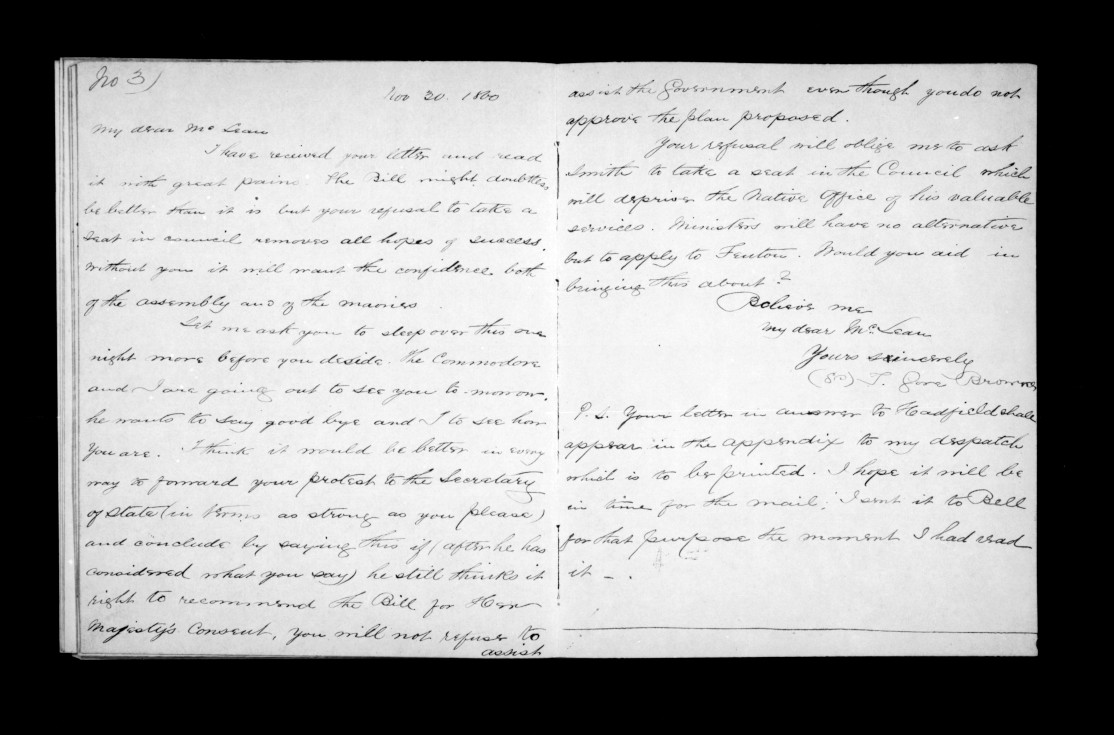 No 3)
Nov 30. 1860
My dear McLean
I have received your letter and read
it with great pains. The Bill might doubtless
be better than it is but your refusal to take a
seat in council removes all hopes of success.
Without you it will want the confidence both
of the assembly and of the maories
Let me ask you to sleep over this one
night more before you deside. The Commodore
and I are going out to see you to-morrow,
he wants to say good bye and I to see how
you are. I think it would be better in every
way to forward your protest to the Secretary
of State (in terms as strong as you please)
and conclude by saying this if (after he has
considered what you say) he still thinks it
right to recommend the Bill for Her
Majesty's Consent, you will not refuse to
assist
assist the Government even though you do not
approve the plan proposed.
Your refusal will oblige me to ask
Smith to take a seat in the Council which
will deprive the Native Office of his valuable
services. Ministers will have no alternative
but to apply to Fenton. Would you aid in
bringing this about?
Believe me
My dear McLean
Yours sincerely
T. Gore Browne
P.S. Your letter in answer to Hadfield shall
appear in the appendix to my despatch
which is to be printed. I hope it will be
in time for the mail; I sent it to Bell
for that purpose the moment I had read
it - .